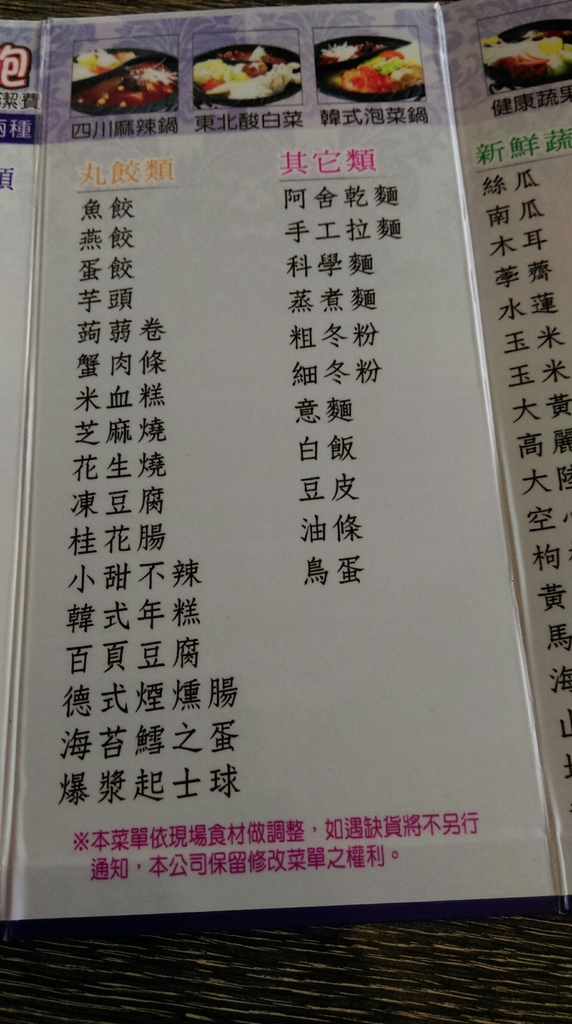 包
潔費
兩種
類
四川麻辣鍋
東北酸白菜
韓式泡菜鍋
丸餃類
魚餃
燕餃
蛋餃
芋頭
蒟蒻卷
蟹肉條
米血糕
芝麻燒
花生燒
凍豆腐
桂花腸
小甜不辣
韓式年糕
百頁豆腐
德式煙燻腸
海苔鱈之蛋
爆漿起士球
其它類
阿舍乾麵
手工拉麵
科學麵
蒸煮麵
粗冬粉
細冬粉
意麵
白飯
豆皮
油條
鳥蛋
※本菜單依現場食材做調整，如遇缺貨將不另行
通知，本公司保留修改菜單之權利。
健康蔬果
新鮮蔬
絲瓜
南瓜
木耳
荸薺
水蓮
玉米
玉米
大黃
高麗
大陸
空心
枸
黃
馬
海
山